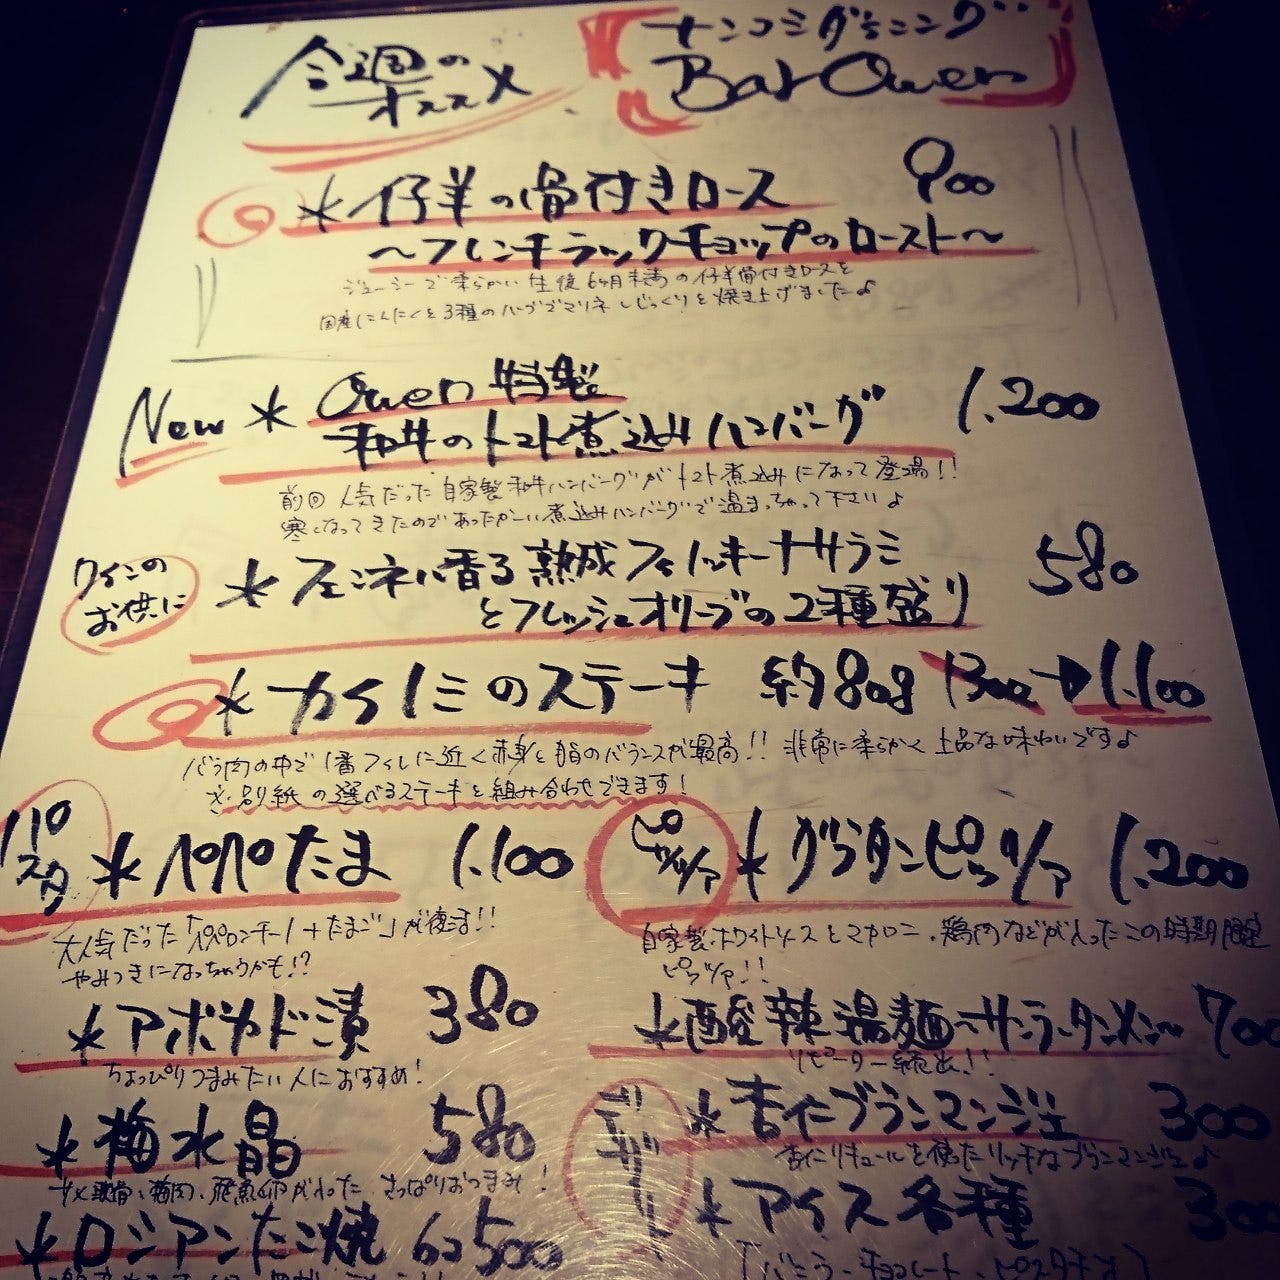 今週の
オススメ
ナンコミダイニング
Bar Owen
*仔羊の骨付きロース 900
〜フレンチラックチョップのロースト〜
ジューシーで柔らかい生後6ヶ月未満の仔羊骨付きロースを
国産にんにくと3種のハーブでマリネしじっくりと焼き上げました♪
New * Owen特製
和牛のトマト煮込みハンバーグ 1.200
前回人気だった自家製和牛ハンバーグがトマト煮込みになって登場!!
寒くなってきたのであったかーい煮込みハンバーグで温まっちゃって下さい♪
ワインの
お供に
*フェンネル香る熟成フィノッキーナサラミ 580
とフレッシュオリーブの2種盛り
*カイノミのステーキ 約80g 1300→1.100
バラ肉の中で1番フィレに近く赤身と脂のバランスが最高!! 非常に柔らかく上品な味わいです♪
さ、別紙の選べるステーキと組み合わせできます!
パスタ
*ペペたま 1.100
大人気だった「ペペロンチーノ+たまご」が復活!!
やみつきになっちゃうかも!?
ピッツァ
*グラタンピッツァ 1.200
自家製ホワイトソースとマカロニ、鶏肉などが入ったこの時期限定
ピッツァ!!
*アボカド漬 380
ちょっぴりつまみたい人におすすめ!
*酸辣湯麺〜サンラータンメン〜 700
リピーター続出!!
*梅水晶 580
サメ軟骨、梅肉、飛魚卵が入った さっぱりおつまみ!
デザート
*杏仁ブランマンジェ 300
杏仁リキュールを使ったリッチなブランマンジェ♪
*ロシアンたこ焼 6コ500
*アイス各種 300
[バニラ・チョコレート・ピスタチオ]